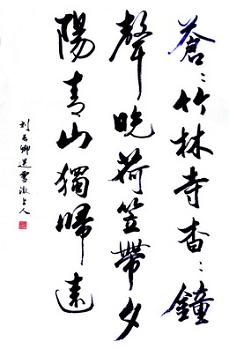 蒼々竹林寺杳々鐘
聲晚荷笠帶夕
陽青山獨歸遠
刘長卿送靈澈上人